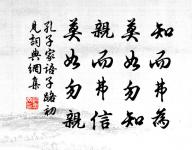 知而弗為
莫如勿知
親而弗信
莫如勿親
孔子家語子路初
見詞典網集